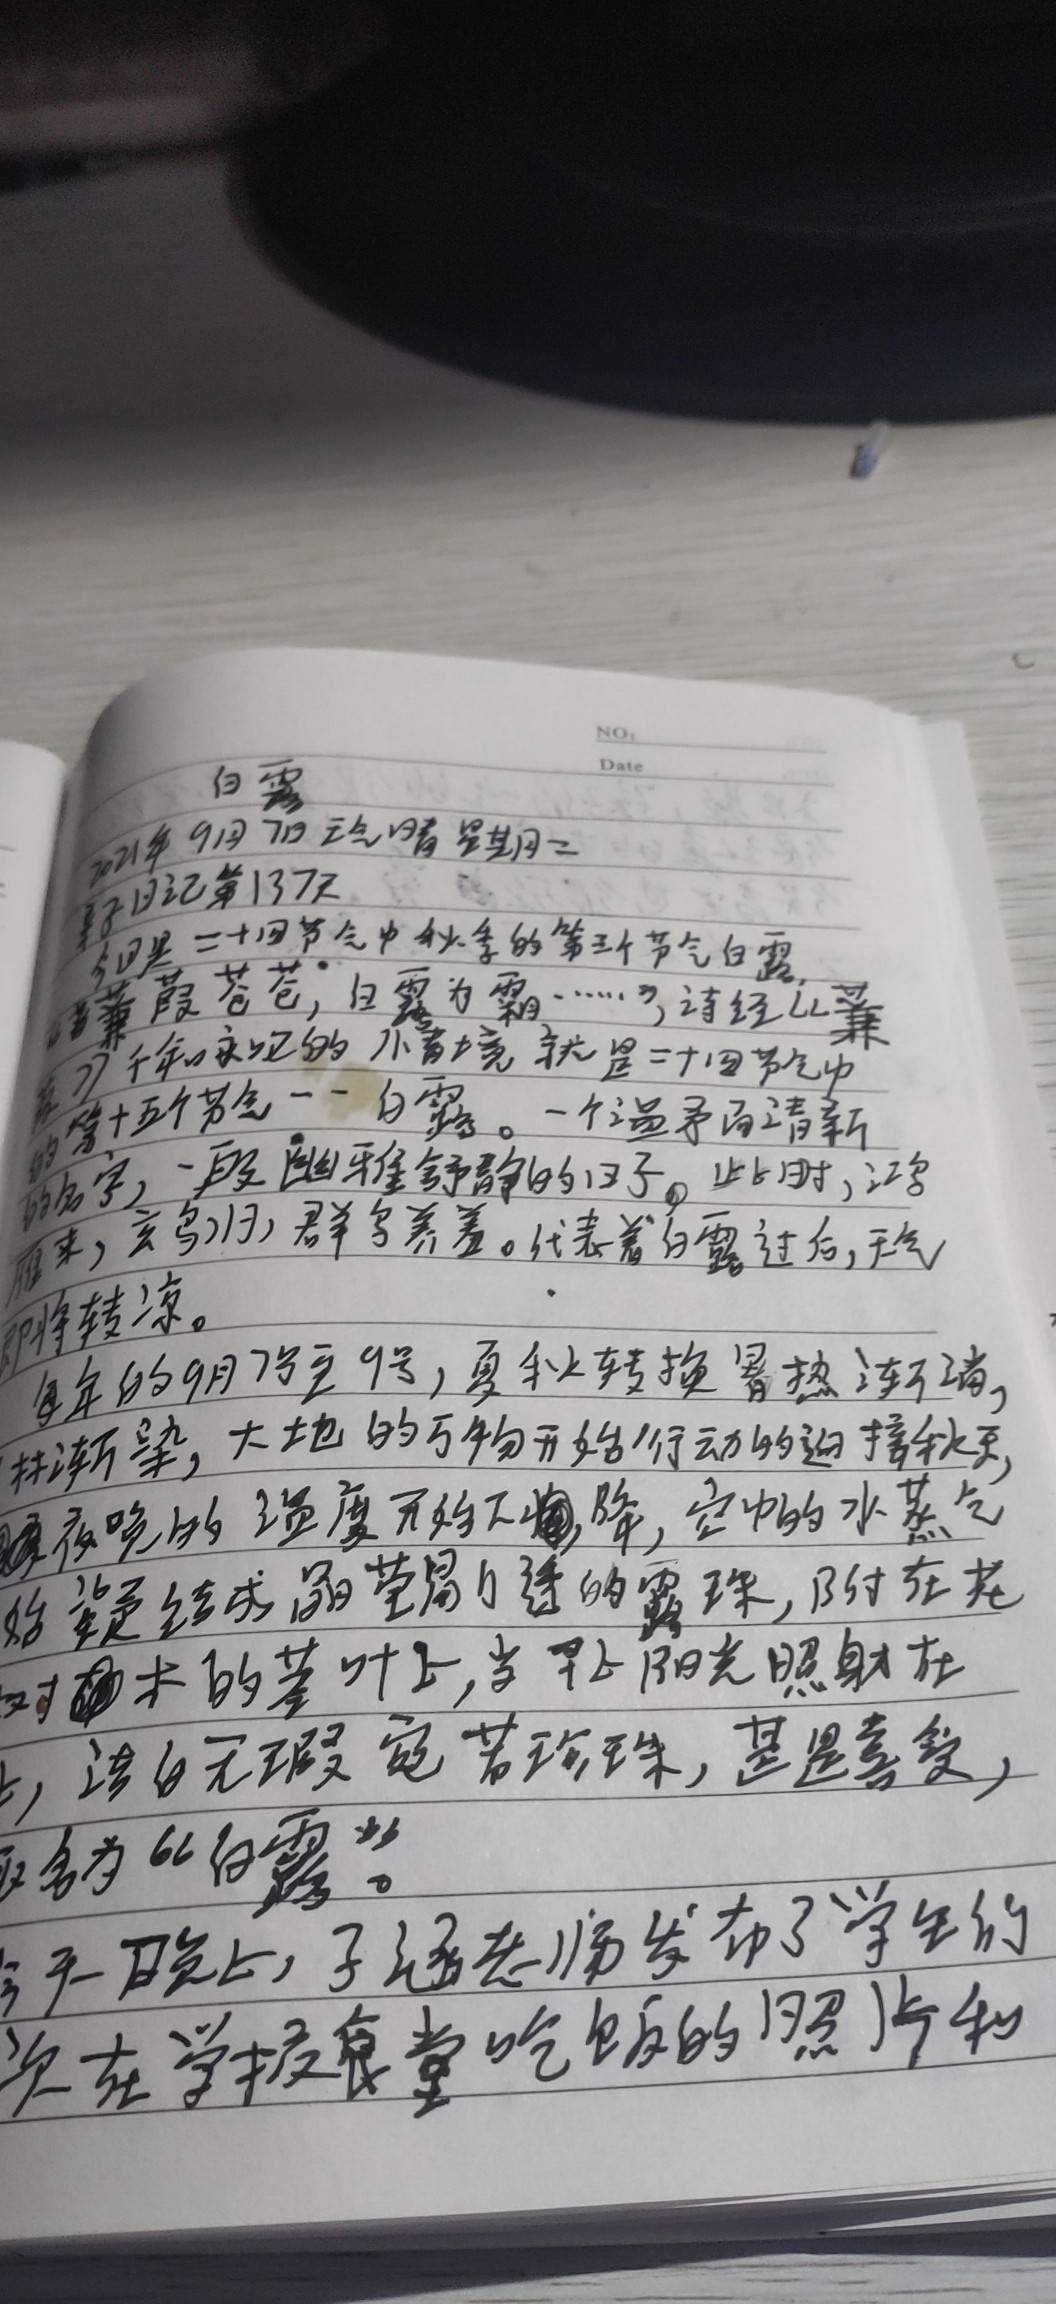 NO:
Date
白露
2021年9月7日 天气晴 星期二
亲子日记第137天
今日是二十四节气中秋季的第三个节气白露,
“蒹葭苍苍，白露为霜……”，诗经《蒹
葭》千年永记的 意境就是二十四节气中
的第十五个节气一一白露。一个温柔而清新
的名字，一段幽雅舒静的日子。此时，鸿
雁来，玄鸟归，群鸟养羞。代表着白露过后，天气
即将转凉。
每年的9月7号至9号，夏秋转换暑热渐消，
林渐染，大地的万物开始行动的迎接秋天，
夜晚的温度开始下降，空中的水蒸气
始凝结成晶莹剔透的露珠，附在花
树木的茎叶上，当早上阳光照射在
上，洁白无瑕宛若珍珠，甚是喜爱，
取名为“白露”。
今天晚上，子涵老师发布了学生的
次在学校食堂吃饭的照片和